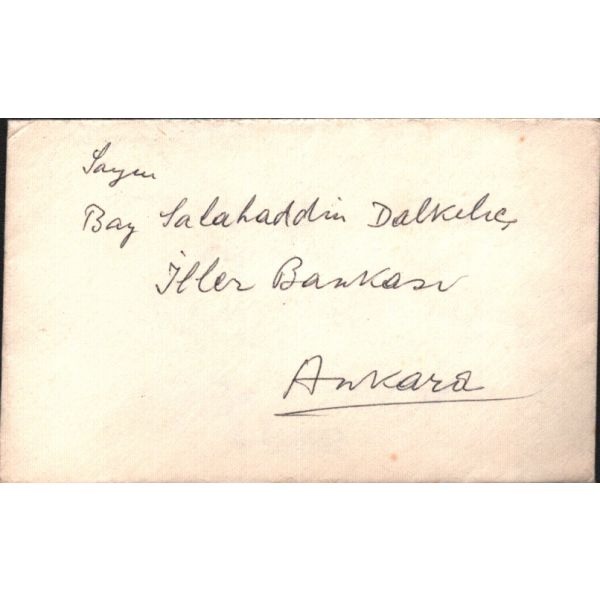 Sayın
Bay Salahaddin Dalkılıç
İller Bankası
Ankara